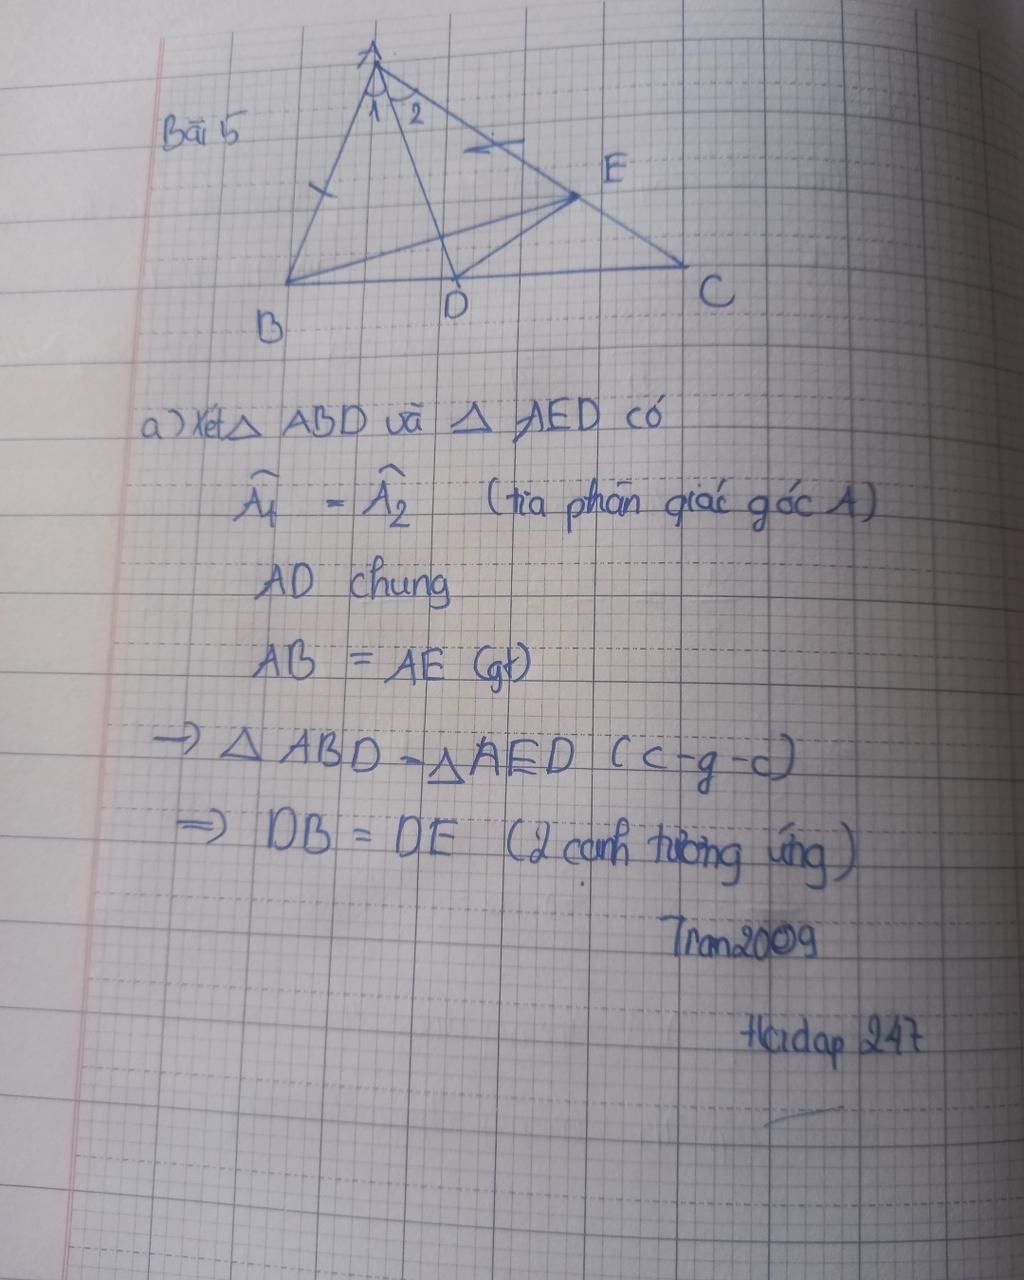 Bài 5
A
1 2
E
B
D
C
a) Xét △ ABD và △ AED có
Â1 = Â2 (tia phân giác góc A)
AD chung
AB = AE (gt)
→ △ ABD = △ AED (c-g-c)
⇒ DB = DE (2 cạnh tương ứng)
Tran2009
Hoidap 247